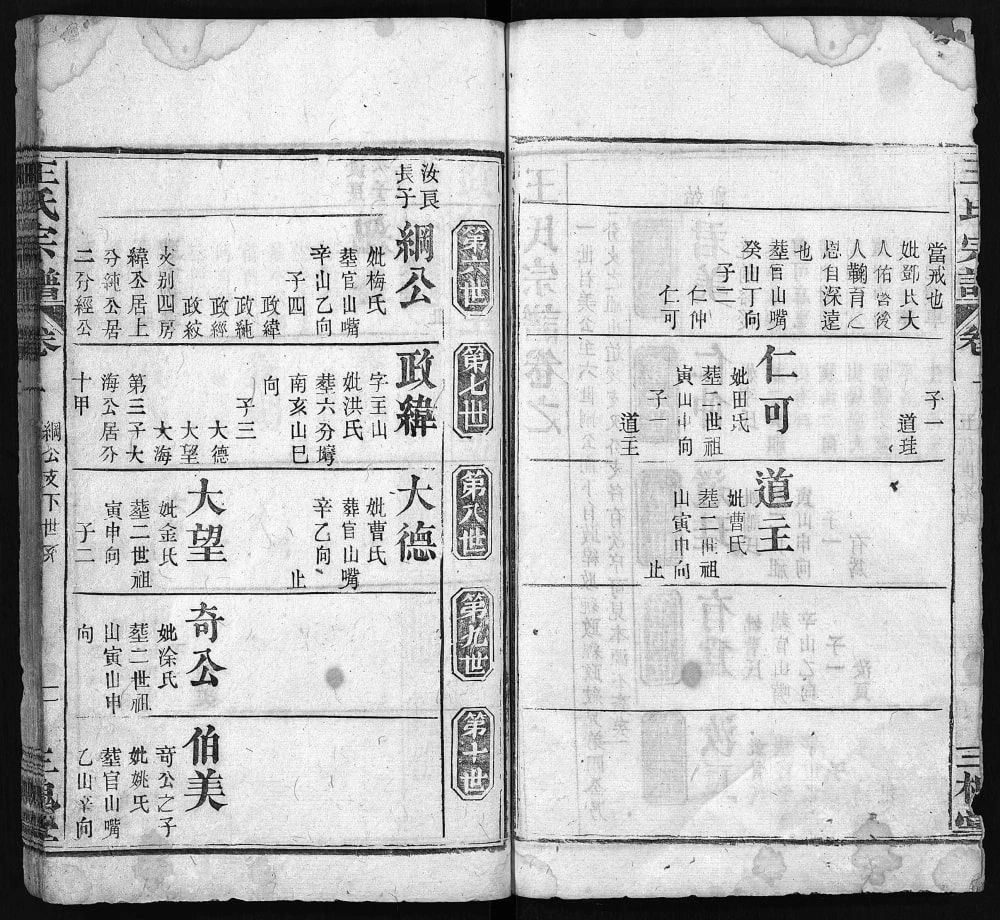 當戒也
妣鄧氏大
人佑啓後
人鞠育之
恩自深遠
也
塟官山嘴
癸山丁向
子二
仁仲
仁可
子一
道珪
仁可
妣田氏
塟二世祖
寅山申向
子一
道王
道王
妣曹氏
塟二世祖
山寅申向
止
王氏宗譜
卷
三槐堂
第六世
第七世
第八世
第九世
第十世
汝良
長子
綱公
妣梅氏
塟官山嘴
辛山乙向
子四
政緯
政純
政經
政紋
支别四房
緯公居上
分純公居
二分經公
政緯
字王山
妣洪氏
塟六分塆
南亥山巳
向
子三
大德
大望
大海
第三子大
海公居分
十甲
大德
妣曹氏
塟官山嘴
辛乙向
止
大望
妣金氏
塟二世祖
寅申向
子二
奇公
妣涂氏
塟二世祖
山寅山申
向
伯美
奇公之子
妣姚氏
塟官山嘴
乙山辛向
王氏宗譜
卷一
綱公支下世系
二
三槐堂